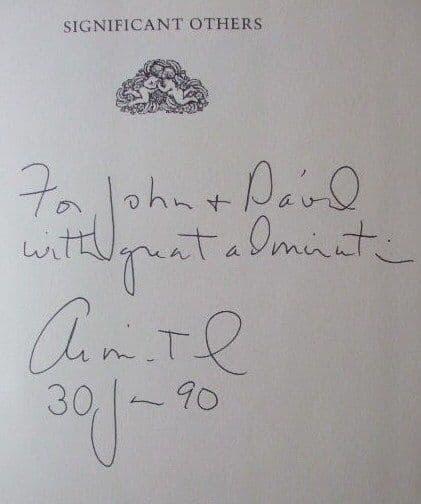 SIGNIFICANT OTHERS
For John + David
with great admiration
30 Jan 90